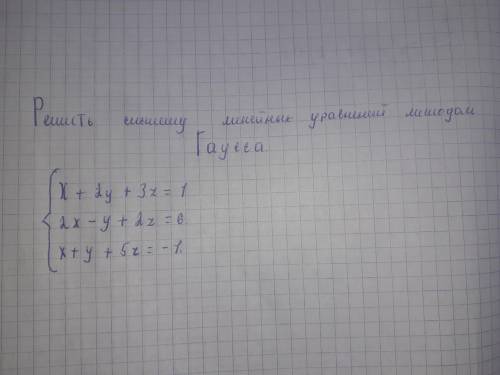 Решить систему линейных уравнений методом
Гаусса
x + 2y + 3z = 1
2x - y + 2z = 6
x + y + 5z = -1.